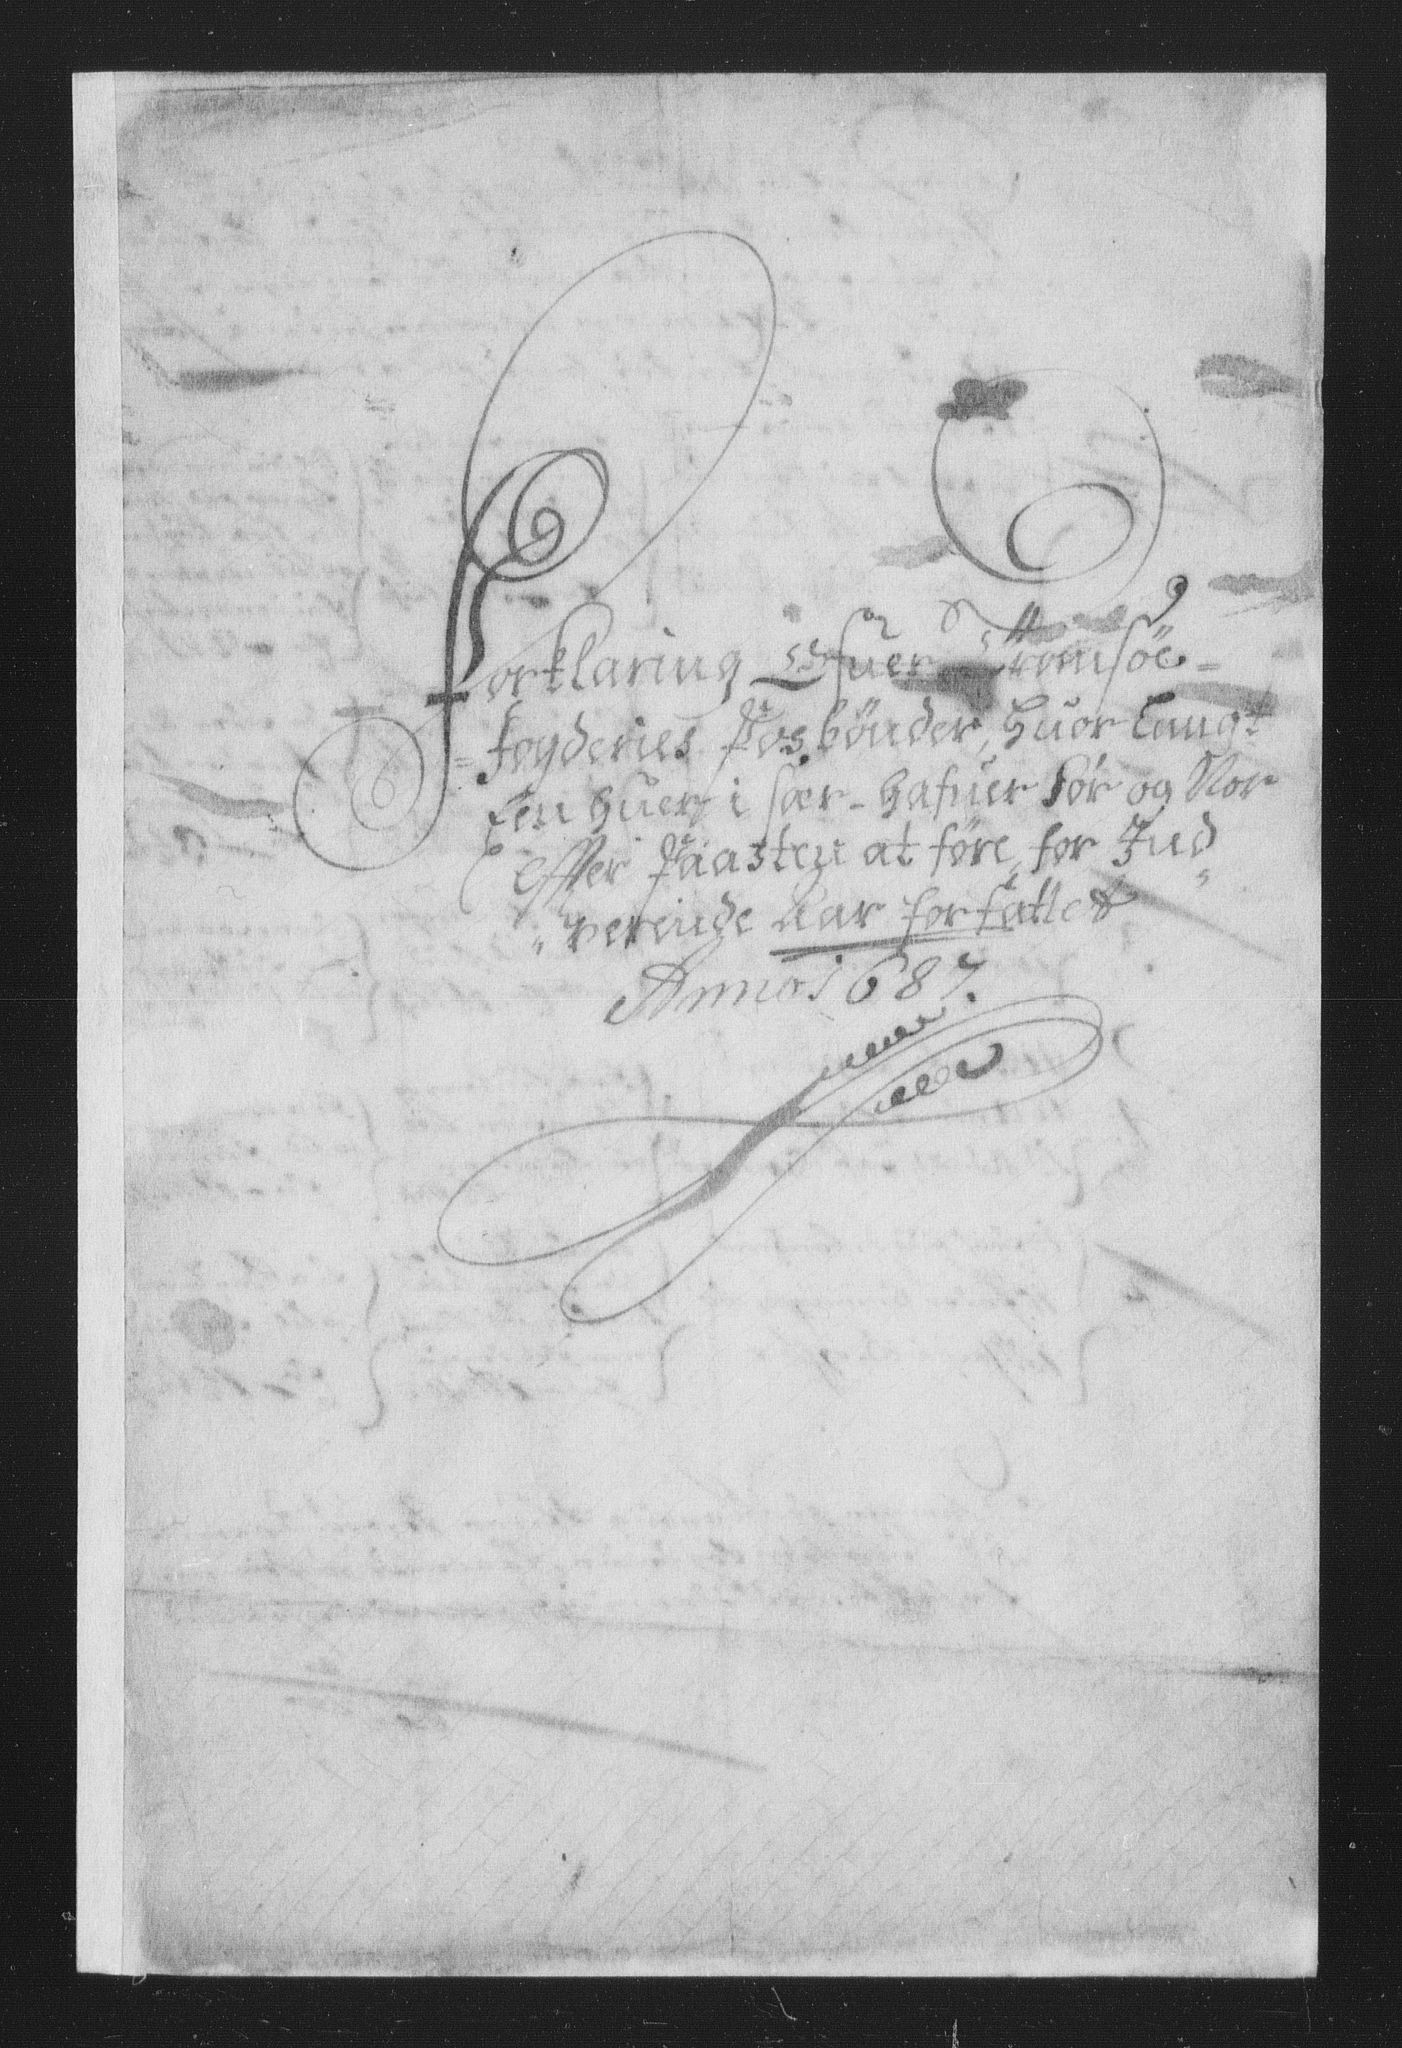 Forklaring Ofuer Tromsöe-
=fogderies Posbönder, huor Langt
Een huer i sær- hafuer Sör og Nor
effter Paasten at före, for Ind„
„verende Aar forfattet
Anno 1687.